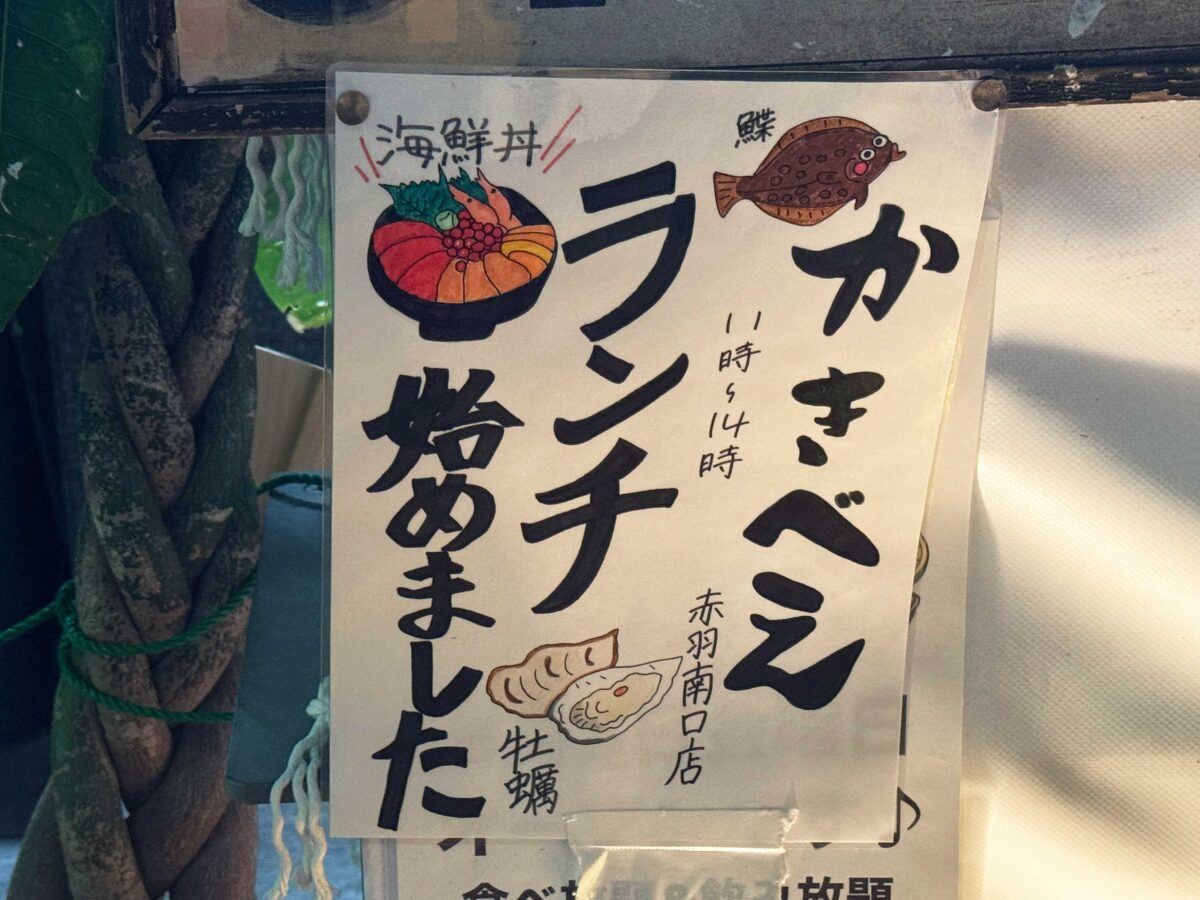 鰈
かきべえ
11時〜14時
赤羽南口店
ランチ
海鮮丼
始めました
牡蠣
放題